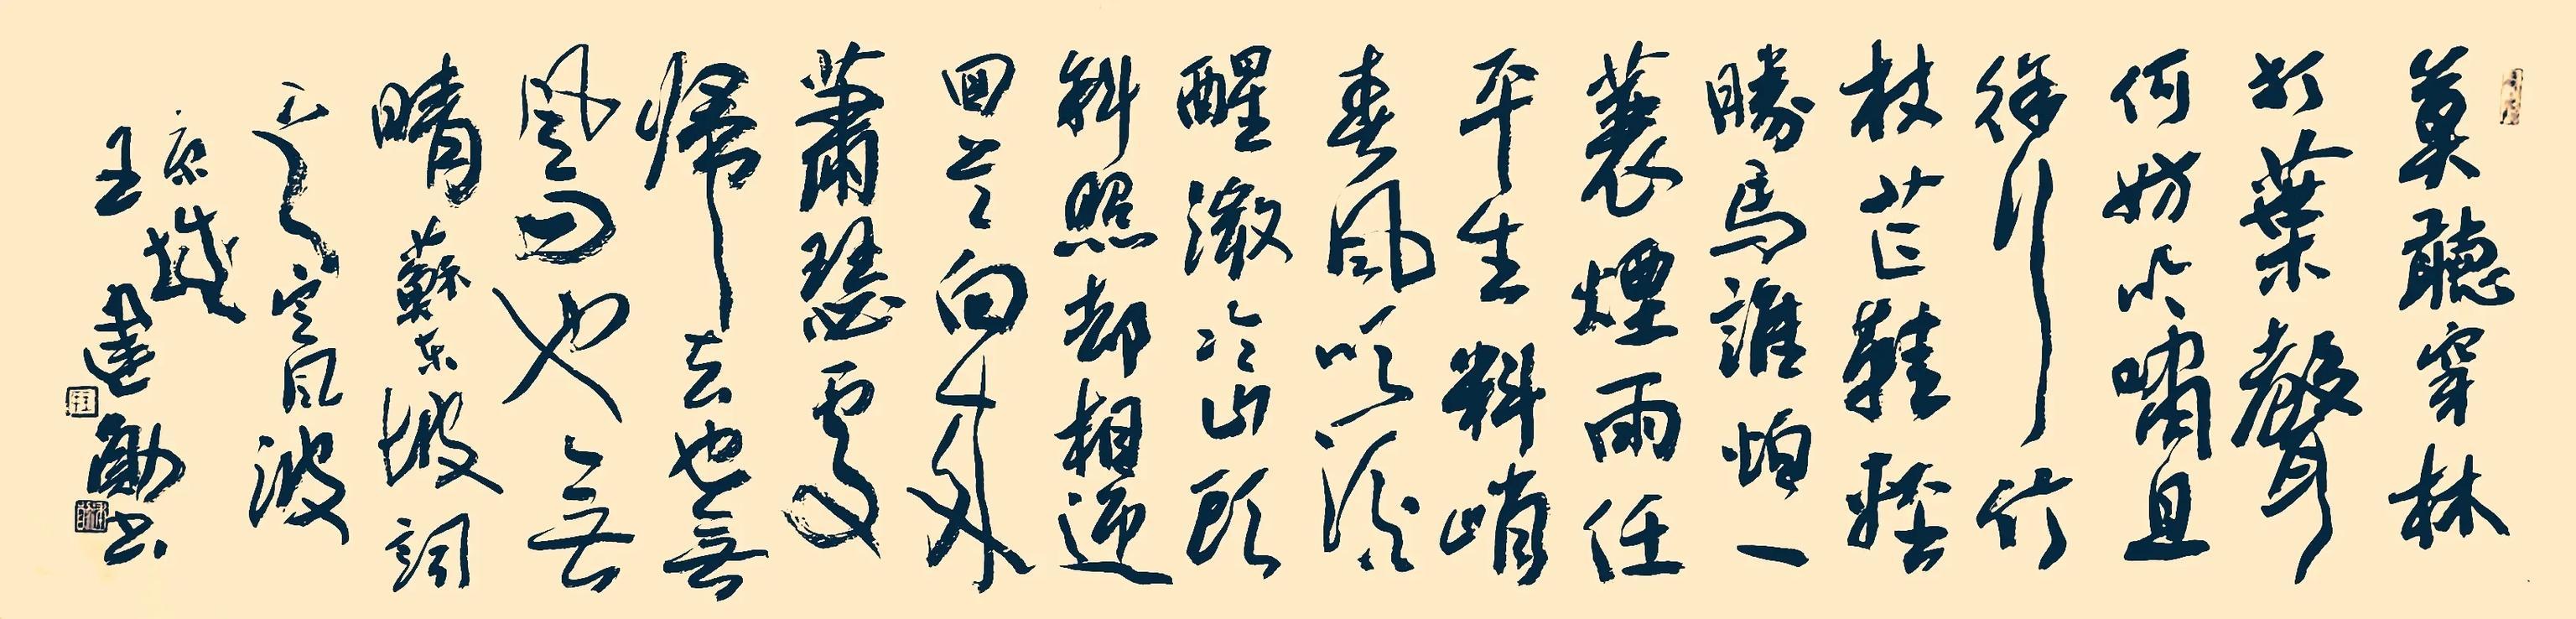 莫聽穿林
打葉聲
何妨吟嘯且
徐行竹
杖芒鞋輕
勝馬誰怕一
蓑煙雨任
平生料峭
春風吹酒
醒微冷山頭
斜照却相迎
回首向来
蕭瑟處
帰去也無
風雨也無
晴蘇東坡詞
之定風波
京城
王書